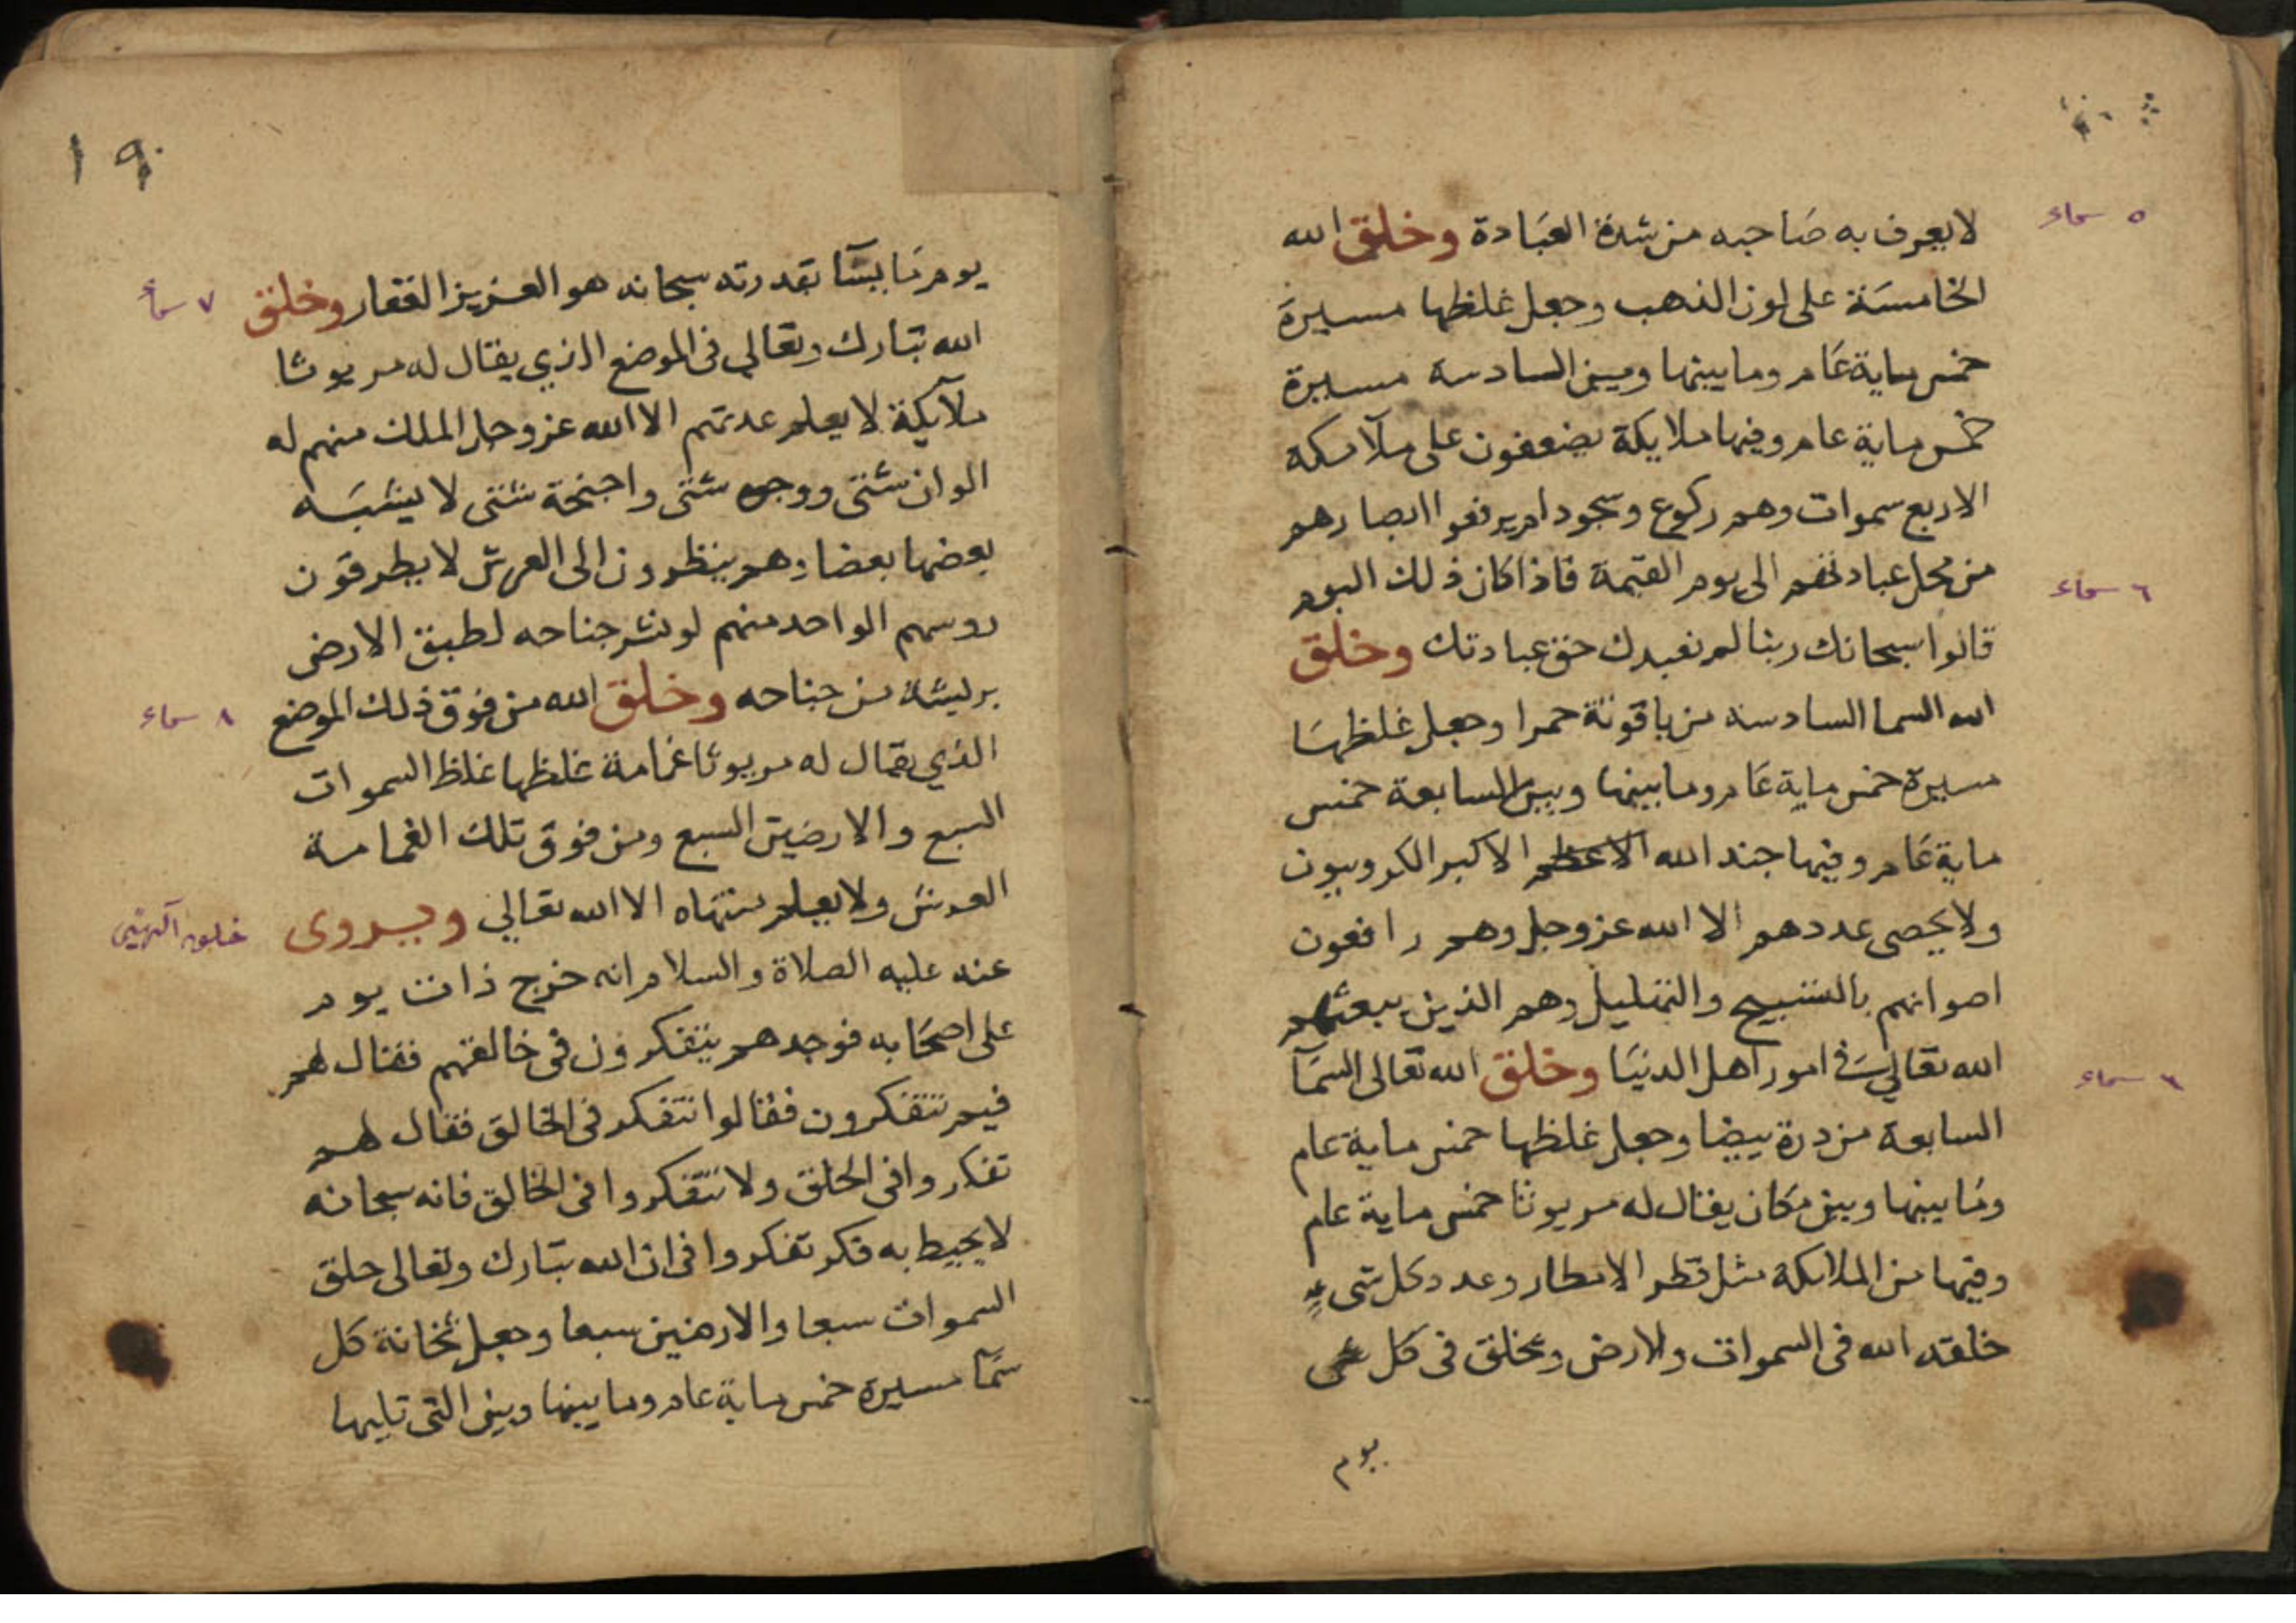 لا يعرف به صاحبه من شدة العبادة وخلق الله
٥ سماء
الخامسة على لون الذهب وجعل غلظها مسيرة
خمس ماية عام وما بينها وبين السادسة مسيرة
خمس ماية عام وفيها ملايكة يضعفون على ملآئكة
الاربع سموات وهم ركوع وسجود لم يرفعوا ابصارهم
من محل عبادتهم الى يوم القيمة فاذا كان ذلك اليوم
٦ سماء
قالوا سبحانك ربنا لم نعبدك حق عبادتك وخلق
الله السما السادسه من ياقوتة حمرا وجعل غلظها
مسيرة خمس ماية عام وما بينها وبين السابعة خمس
ماية عام وفيها جند الله الاعظم الاكبر الكروبيون
ولا يحصى عددهم الا الله عز وجل وهم رافعون
اصواتهم بالتسبيح والتهليل وهم الذين يبعثهم
الله تعالى في امور اهل الدنيا وخلق الله تعالى السمآ
سماء
السابعة من درة بيضا وجعل غلظها خمس ماية عام
وما بينها وبين مكان يقال له مريوثا خمس ماية عام
وفيها من الملائكة مثل قطر الامطار وعدد كل شىءٍ
خلقه الله في السموات والارض ويخلق في كل
يوم
١٩
يوم ما يشآ بقدرته سبحانه هو العزيز الغفار وخلق
٧ سماء
الله تبارك وتعالى في الموضع الذي يقال له مريوثا
ملآيكة لا يعلم عدتهم الا الله عز وجل الملك منهم له
الوان شتى ووجوه شتى واجنحة شتى لا يشبه
بعضها بعضا وهم ينظرون الى العرش لا يطرقون
روسهم الواحد منهم لو نشر جناحه لطبق الارض
بريشة من جناحه وخلق الله من فوق ذلك الموضع
٨ سماء
الذي يقال له مريوثا غمامة غلظها غلظ السموات
السبع والارضين السبع ومن فوق تلك الغمامة
العرش ولا يعلم منتهاه الا الله تعالى ويروى
عنه عليه الصلاة والسلام انه خرج ذات يوم
على اصحابه فوجدهم يتفكرون في خالقهم فقال لهم
فيم تتفكرون فقالوا نتفكر في الخالق فقال لهم
تفكروا في الخلق ولا تتفكروا في الخالق فانه سبحانه
لا يحيط به فكر تفكروا في ان الله تبارك وتعالى خلق
السموات سبعا والارضين سبعا وجعل ثخانة كل
سمآ مسيرة خمس ماية عام وما بينها وبين التى تليها